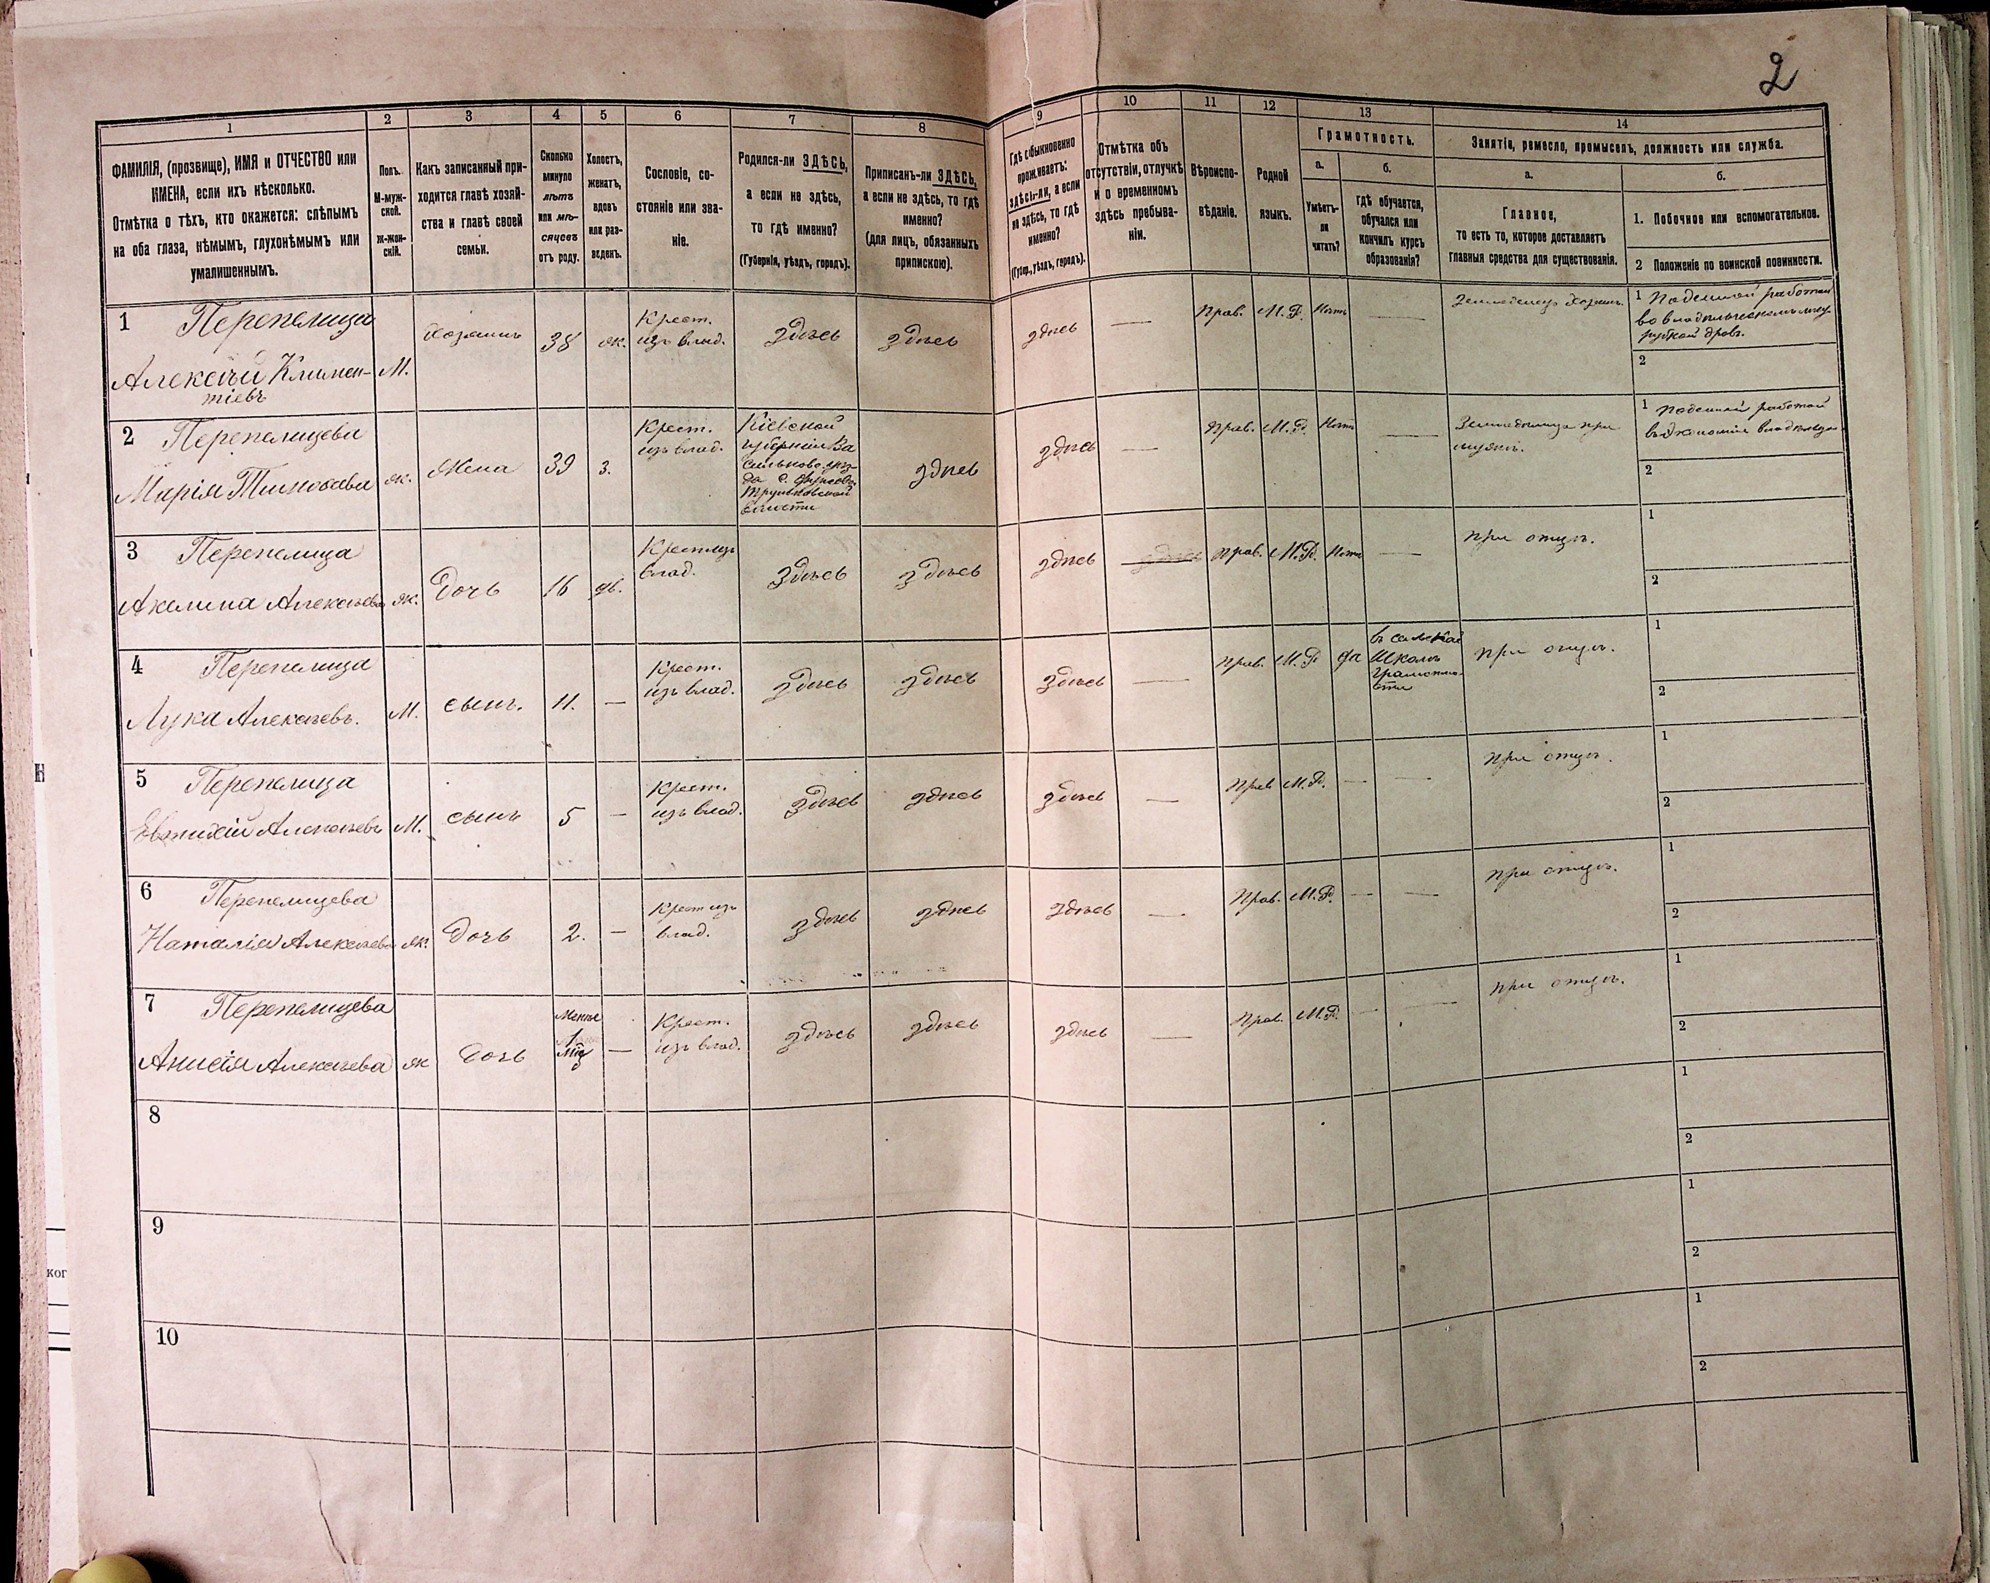 2
1
2
3
4
5
6
7
8
9
10
11
12
13
14
ФАМИЛІЯ, (прозвище), ИМЯ и ОТЧЕСТВО или
ИМЕНА, если ихъ нѣсколько.
Отмѣтка о тѣхъ, кто окажется: слѣпымъ
на оба глаза, нѣмымъ, глухонѣмымъ или
умалишеннымъ.
Полъ.
М-муж-
ской.
Ж-жен-
скій.
Какъ записанный при-
ходится главѣ хозяй-
ства и главѣ своей
семьи.
Сколько
минуло
лѣтъ
или мѣ-
сяцевъ
отъ роду.
Холостъ,
женатъ,
вдовъ
или раз-
веденъ.
Сословіе, со-
стояніе или зва-
ніе.
Родился-ли ЗДѢСЬ,
а если не здѣсь,
то гдѣ именно?
(Губернія, уѣздъ, городъ).
Приписанъ-ли ЗДѢСЬ,
а если не здѣсь, то гдѣ
именно?
(для лицъ, обязанныхъ
припискою).
Гдѣ обыкновенно
проживаетъ:
здѣсь-ли, а если
не здѣсь, то гдѣ
именно?
(Губер., уѣздъ, городъ).
Отмѣтка объ
отсутствіи, отлучкѣ
и о временномъ
здѣсь пребыва-
ніи.
Вѣроиспо-
вѣданіе.
Родной
языкъ.
Грамотность.
а.
б.
Умѣетъ-
ли
читать?
гдѣ обучается,
обучался или
кончилъ курсъ
образованія?
Занятіе, ремесло, промыселъ, должность или служба.
а.
б.
Главное,
то есть то, которое доставляетъ
главныя средства для существованія.
1. Побочное или вспомогательное.
2 Положеніе по воинской повинности.
1 Перепелица
Алексѣй Климен-
тіевъ
М.
Хозяинъ
38
ж.
Крест.
изъ влад.
здѣсь
здѣсь
здѣсь
—
Прав.
М.Р.
Нѣтъ
—
Земледѣлецъ Хозяинъ.
1 Поденной работой
рубкой дровъ.
2
2 Перепелицева
Марія
ж.
Жена
39
з.
Крест.
изъ влад.
Кіевской
губерніи Ва
волости
здѣсь
здѣсь
—
Прав.
М.Р.
Нѣтъ
—
Земледѣлица при
мужѣ.
1 Поденной работой
въ экономіи владѣльца
2
3 Перепелица
Акилина Алексѣева
ж.
Дочь
16
дѣ.
Крест изъ
влад.
здѣсь
здѣсь
здѣсь
Прав.
М.Р.
Нѣтъ
—
при отцѣ.
1
2
4 Перепелица
Лука Алексѣевъ.
М.
сынъ.
11.
—
Крест.
изъ влад.
здѣсь
здѣсь
здѣсь
—
Прав.
М.Р
да
въ сельской
Школѣ
Грамотно-
сти
при отцѣ.
1
2
5 Перепелица
Евтихій Алексѣевъ
М.
сынъ
5
—
Крест.
изъ влад.
здѣсь
здѣсь
здѣсь
—
Прав
М.Р.
—
—
при отцѣ.
1
2
6 Перепелицева
Наталія Алексѣева
ж.
Дочь
2.
—
Крест изъ
влад.
здѣсь
здѣсь
здѣсь
—
Прав.
М.Р.
—
—
при отцѣ.
1
2
7 Перепелицева
Анисія Алексѣева
ж
Дочь
Менѣе
1
Мѣц
—
Крест.
изъ влад.
здѣсь
здѣсь
здѣсь
—
Прав.
М.Р.
—
—
при отцѣ.
1
2
8
1
2
9
1
2
10
1
2
ког